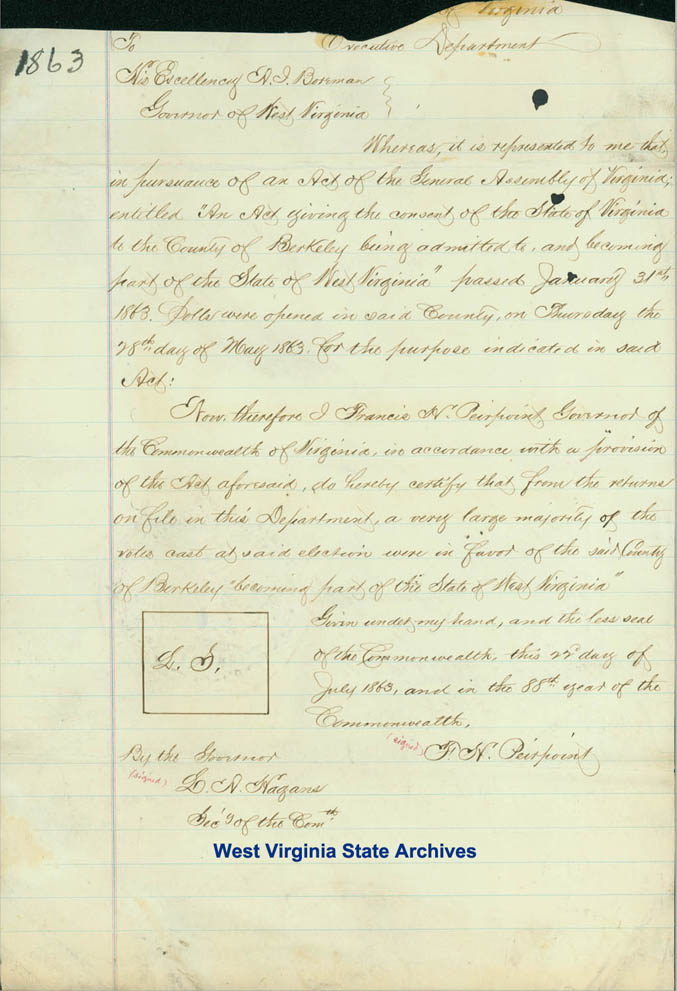 of Virginia
1863
To Executive Department
His Excellency A. I. Boreman
Governor of West Virginia
Whereas, it is represented to me that,
in pursuance of an Act of the General Assembly of Virginia;
entitled "An Act giving the consent of the State of Virginia
to the County of Berkeley being admitted to, and becoming
part of the State of West Virginia" passed January 31st,
1863. Polls were opened in said County, on Thursday the
28th day of May 1863. for the purpose indicated in said
Act:
Now, therefore I Francis H. Peirpoint Governor of
the Commonwealth of Virginia, in accordance with a provision
of the Act aforesaid, do hereby certify that from the returns
on file in this Department, a very large majority of the
votes cast at said election were in "favor of the said County
of Berkeley becoming part of the State of West Virginia"
Given under my hand, and the less seal
L. S.
of the Commonwealth, this 22d day of
July 1863, and in the 88th year of the
Commonwealth,
(signed) F. H. Peirpoint
By the Governor
(signed) L. A. Hagans
Secy of the Comth.
West Virginia State Archives